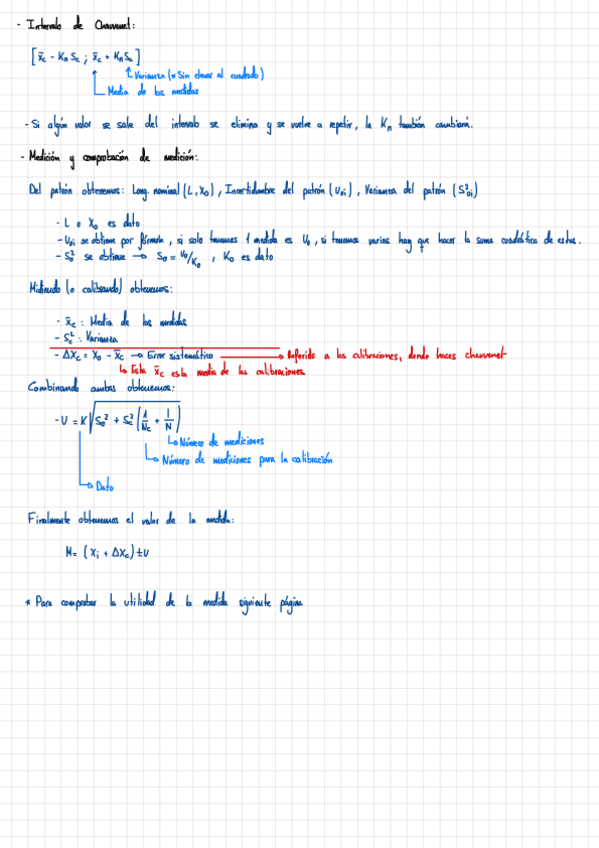 - Intervalo de Chauvenet:
[x̄c - Kn Sc ; x̄c + Kn Sc]
Varianza (* Sin elevar al cuadrado)
Media de las medidas
- Si algún valor se sale del intervalo se elimina y se vuelve a repetir, la Kn también cambiará.
- Medición y comprobación de medición:
Del patrón obtenemos: Long. nominal (L, X0), Incertidumbre del patrón (U0i), Varianza del patrón (S²0i)
- L o X0 es dato
- U0i se obtiene por fórmula, si solo tenemos 1 medida es U0, si tenemos varias hay que hacer la suma cuadrática de estas.
- S0² se obtiene → S0 = U0/K0, K0 es dato
Midiendo (o calibrando) obtenemos:
- x̄c : Media de las medidas
- Sc² : Varianza
- ΔXc = X0 - x̄c → Error sistemático → Referido a las calibraciones, donde haces chauvenet
Esta x̄c es la media de las calibraciones
Combinando ambas obtenemos:
- U = K√(S0² + Sc² (1/Nc + 1/N))
Número de mediciones
Número de mediciones para la calibración
Dato
Finalmente obtenemos el valor de la medida:
M = (Xi + ΔXc) ± U
* Para comprobar la utilidad de la medida siguiente página